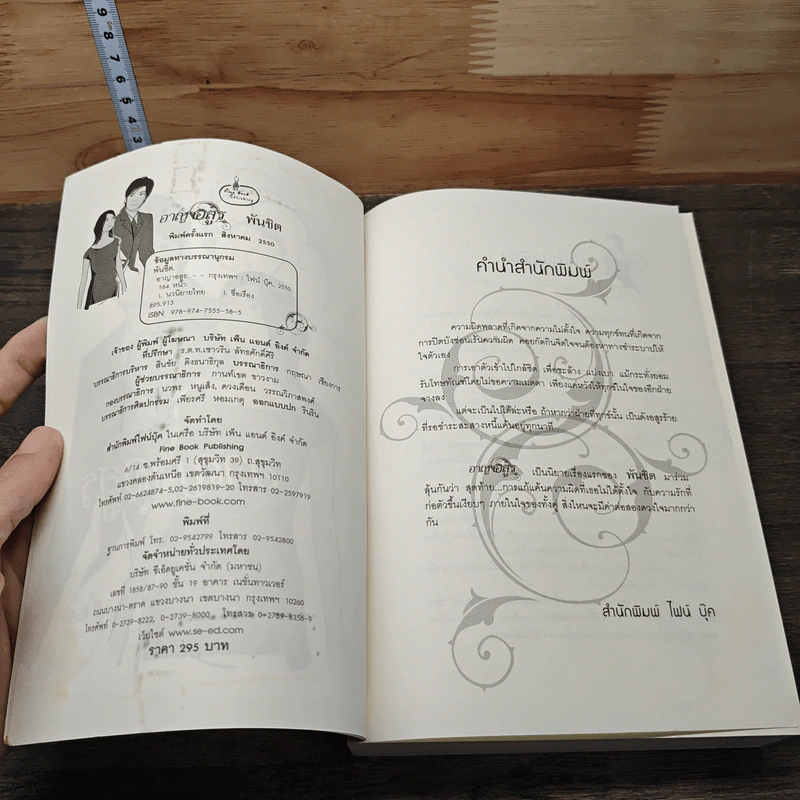 9
8
7
6
5
4
3
Fine Book
Publishing
อาญาอสูร พันชิต
พิมพ์ครั้งแรก สิงหาคม 2550
ข้อมูลทางบรรณานุกรม
พันชิต.
อาญาอสูร. -- กรุงเทพฯ : ไฟน์ บุ๊ค, 2550.
584 หน้า.
1. นวนิยายไทย I. ชื่อเรื่อง
895.913
ISBN 978-974-7555-58-5
เจ้าของ ผู้พิมพ์ ผู้โฆษณา บริษัท เพ็น แอนด์ อิงค์ จำกัด
ที่ปรึกษา ร.ต.ท.เชาวริน ลัทธศักดิ์ศิริ
บรรณาธิการบริหาร สินชัย ตึงธนาธิกุล บรรณาธิการ กฤษณา เรียงการ
ผู้ช่วยบรรณาธิการ กานท์เขต ขาวงาม
กองบรรณาธิการ นวพร หนูเส้ง, ดวงเดือน วรรณวิภาสพงศ์
บรรณาธิการศิลปกรรม เพียรศรี หอมเกตุ ออกแบบปก รินริน
จัดทำโดย
สำนักพิมพ์ไฟน์บุ๊ค ในเครือ บริษัท เพ็น แอนด์ อิงค์ จำกัด
Fine Book Publishing
6/14 ซ.พร้อมศรี 1 (สุขุมวิท 39) ถ.สุขุมวิท
แขวงคลองตันเหนือ เขตวัฒนา กรุงเทพฯ 10110
โทรศัพท์ 02-6624874-5,02-2619819-20 โทรสาร 02-2597919
www.fine-book.com
พิมพ์ที่
ฐานการพิมพ์ โทร. 02-9542799 โทรสาร 02-9542800
จัดจำหน่ายทั่วประเทศโดย
บริษัท ซีเอ็ดยูเคชั่น จำกัด (มหาชน)
เลขที่ 1858/87-90 ชั้น 19 อาคาร เนชั่นทาวเวอร์
ถนนบางนา-ตราด แขวงบางนา เขตบางนา กรุงเทพฯ 10260
โทรศัพท์ 0-2739-8222, 0-2739-8000 โทรสาร 0-2739-8356-9
เว็บไซต์ www.se-ed.com
ราคา 295 บาท
คำนำสำนักพิมพ์
ความผิดพลาดที่เกิดจากความไม่ตั้งใจ ความทุกข์ทนที่เกิดจาก
การปิดบังซ่อนเร้นความผิด คอยกัดกินจิตใจจนต้องหาทางชำระบาปให้
ใจตัวเอง
การเอาตัวเข้าไปใกล้ชิด เพื่อชะล้าง แบ่งเบา แม้กระทั่งยอม
รับโทษทัณฑ์โดยไม่ขอความเมตตา เพียงแค่หวังให้ทุกข์ในใจของอีกฝ่าย
จางลง
แต่จะเป็นไปได้ล่ะหรือ ถ้าหากว่าฝ่ายที่ทุกข์นั้น เป็นดังอสูรร้าย
ที่รอชำระสะสางหนี้แค้นอยู่ทุกนาที
อาญาอสูร เป็นนิยายเรื่องแรกของ พันชิต มาร่วม
ลุ้นกันว่า สุดท้าย...การแก้แค้นความผิดที่เธอไม่ได้ตั้งใจ กับความรักที่
ก่อตัวขึ้นเงียบๆ ภายในใจของทั้งคู่ สิ่งไหนจะมีค่าต่อสองดวงใจมากกว่า
กัน
สำนักพิมพ์ ไฟน์ บุ๊ค